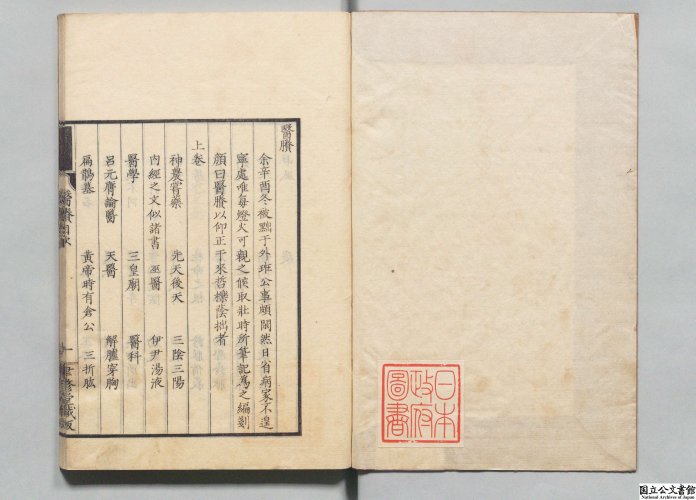 醫賸
余辛酉冬被黜于外班公事頗闊然日省病家不遑
寧處唯每燈火可親之候取壯時所筆記爲之編劄
顏曰醫賸以仰正于來哲櫟蔭拙者
上卷
神農嘗藥 先天後天 三陰三陽
內經之文似諸書 巫醫 伊尹湯液
醫學 三皇廟 醫科
呂元膺論醫 天醫 解臚穿胸
扁鵲墓 黃帝時有倉公 三折肱
醫賸目錄 一 聿修堂藏版
日本
政府
圖書
国立公文書館
National Archives of Japan